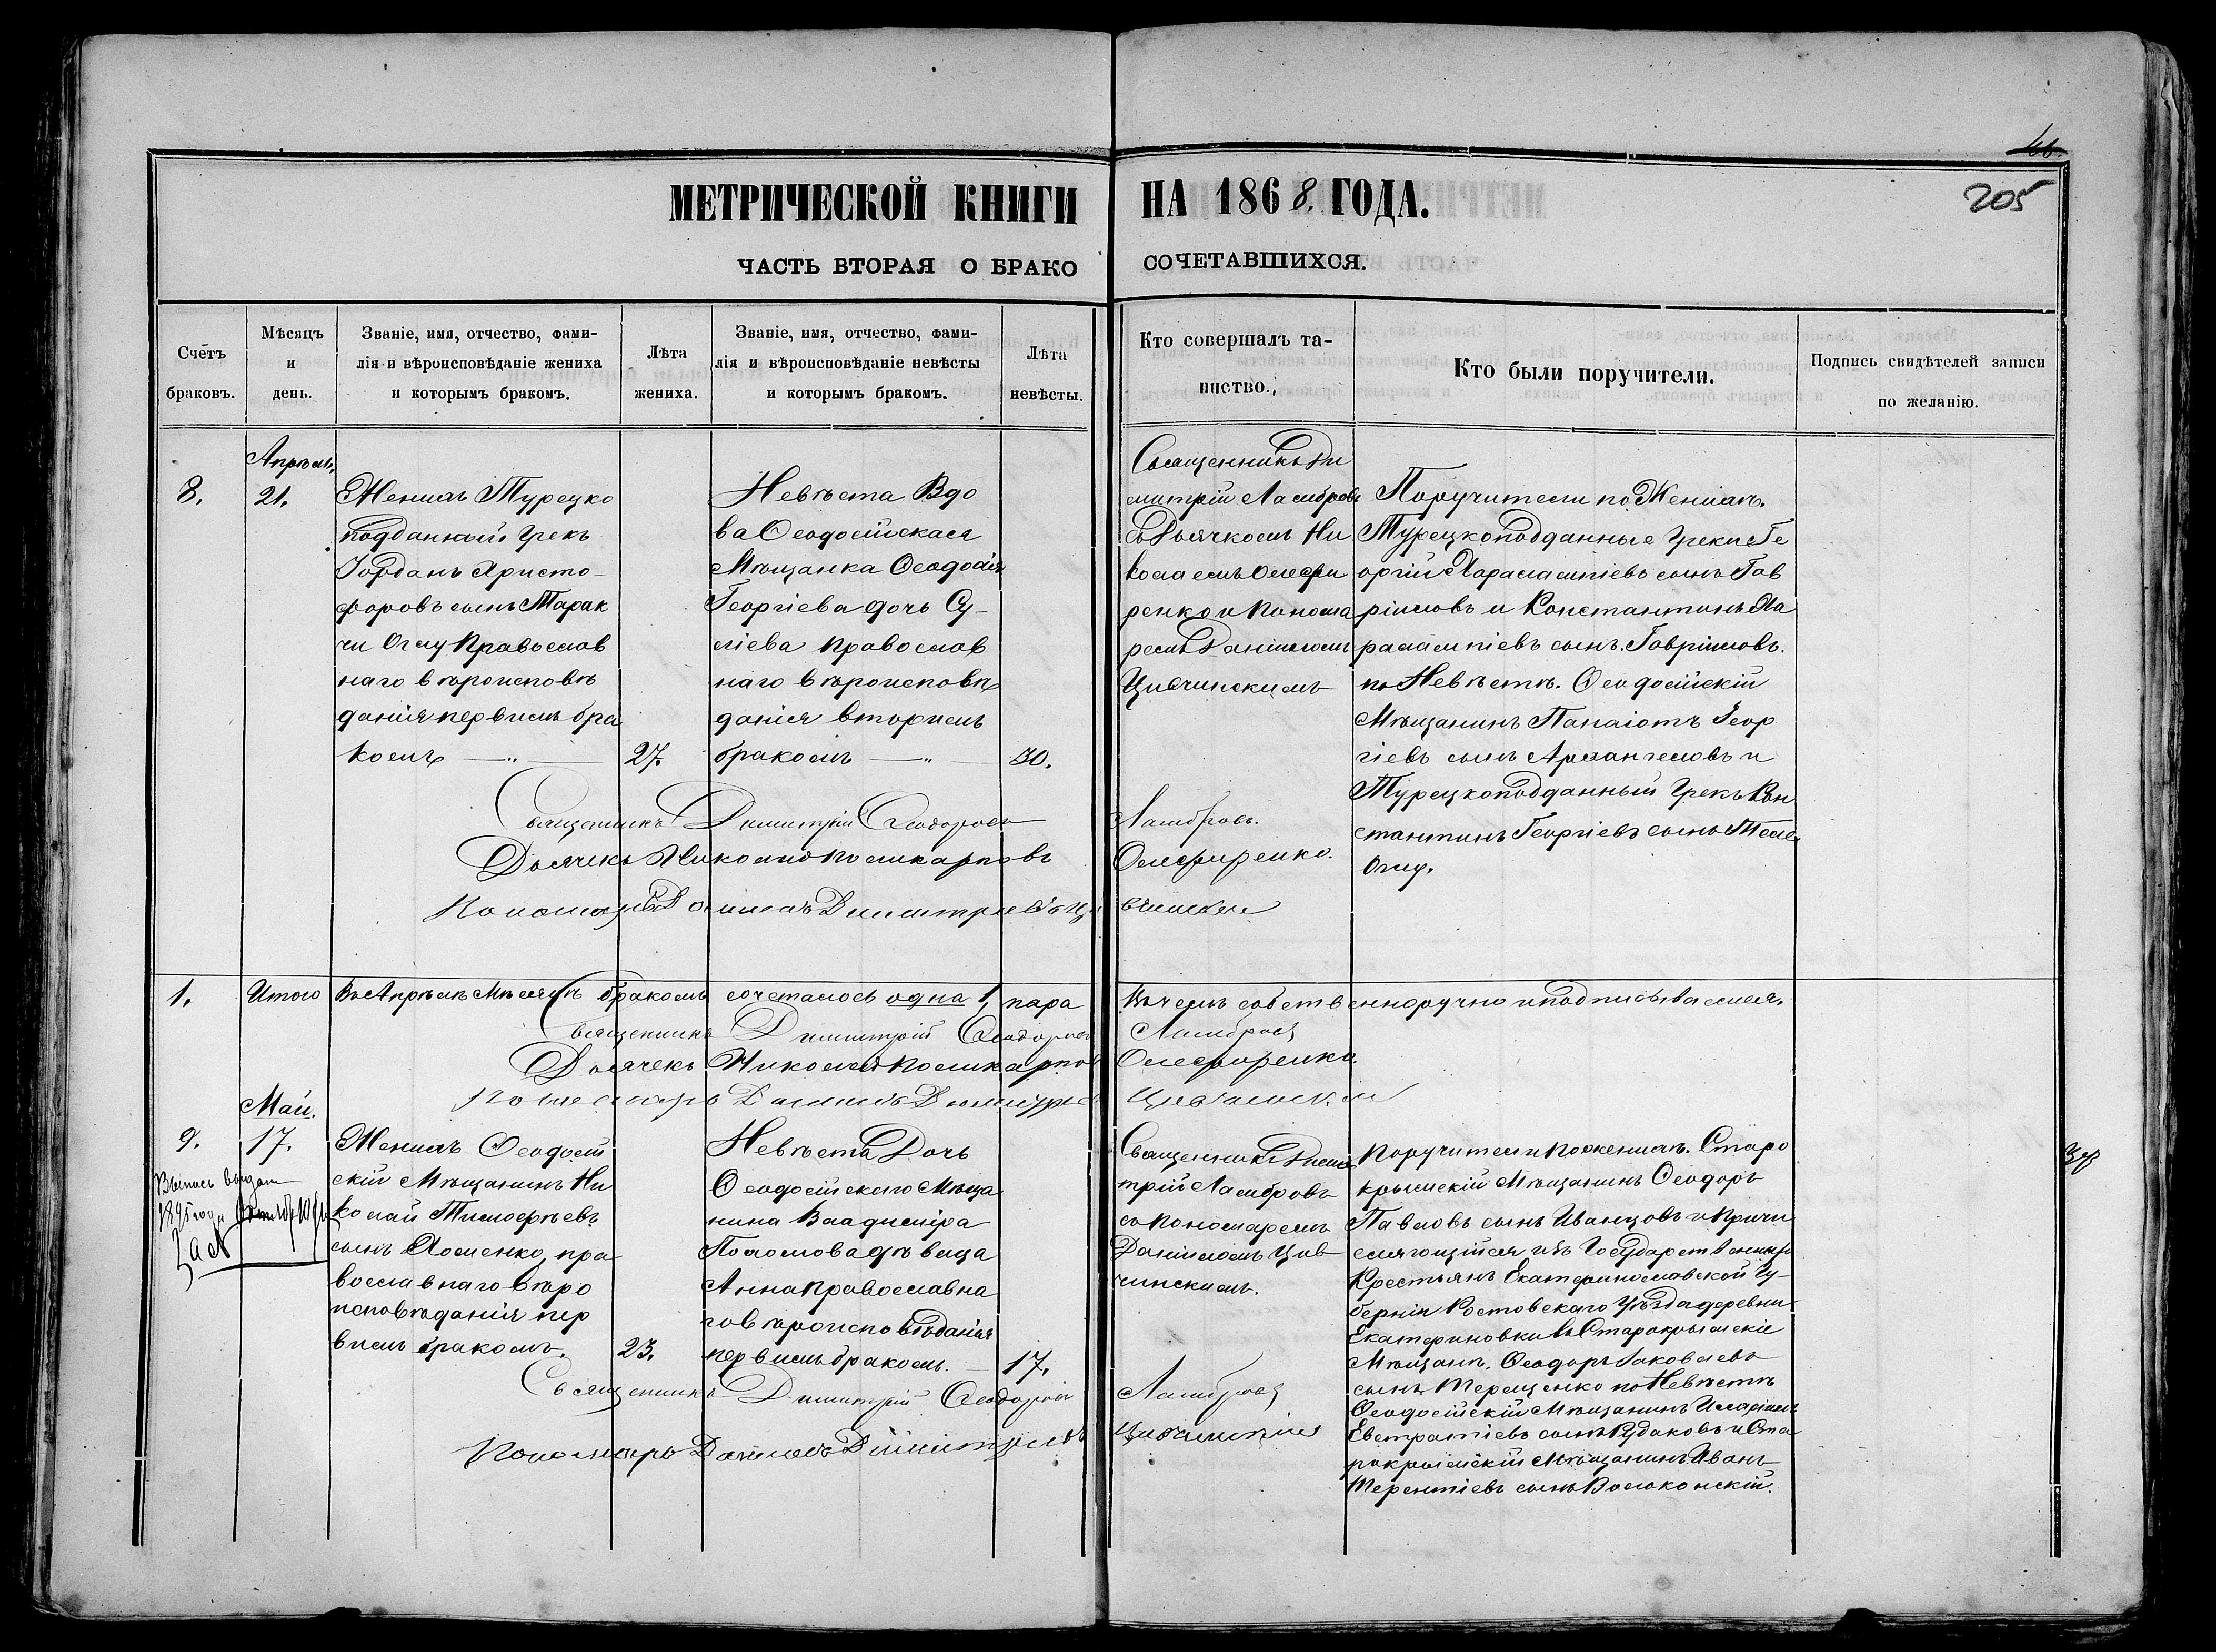 66.
205
МЕТРИЧЕСКОЙ КНИГИ НА 1868. ГОДА.
ЧАСТЬ ВТОРАЯ О БРАКО СОЧЕТАВШИХСЯ.
Счетъ браковъ.
Мѣсяцъ и день.
Званіе, имя, отчество, фами-
лія и вѣроисповѣданіе жениха
и которымъ бракомъ.
Лѣта жениха.
Званіе, имя, отчество, фами-
лія и вѣроисповѣданіе невѣсты
и которымъ бракомъ.
Лѣта невѣсты.
Кто совершалъ та-
инство.
Кто были поручители.
Подпись свидѣтелей записи
по желанію.
8.
Апрѣль.
21.
Женихъ Турецко
подданный Грекъ
Іорданъ Христо-
форовъ сынъ Тарак
чи Оглу Православ
наго вѣроисповѣ
данія первымъ бра
комъ
27.
Невѣста Вдо
ва Ѳеодосійская
Мѣщанка Ѳеодосія
Георгіева дочь Су-
ліева православ
наго вѣроисповѣ
данія вторымъ
бракомъ
30.
Священникъ Ди
митрій Ламбровъ
съ Дьячкомъ Ни
колаемъ Олефи
ренко и Понома
ремъ Даніиломъ
Цивчинскимъ
Поручители по Женихѣ.
Турецкоподданные Греки Ге
оргій Харалампіевъ сынъ Гав
ріиловъ и Константинъ Ха
ралампіевъ сынъ Гавріиловъ.
по Невѣстѣ. Ѳеодосійскій
Мѣщанинъ Панаіотъ Геор
гіевъ сынъ Архангеловъ и
Турецкоподданный Грекъ Кон
стантинъ Георгіевъ сынъ
Оглу.
Священникъ Димитрій Ѳеодоровъ Ламбровъ.
Дьячекъ Николай Поликарповъ Олефиренко.
Пономарь Даніилъ Димитріевъ Цивчинскій
1. Итого Въ Апрѣлѣ Мѣсяцѣ бракомъ сочеталось одна 1, пара Въ чемъ собственноручно и подписываемся.
Священникъ Димитрій Ѳеодоровъ Ламбровъ
Дьячекъ Николай Поликарповъ Олефиренко.
Пономарь Даніилъ Димитріевъ Цивчинскій
9.
Май.
17.
Выпись выдана
1895 года
Женихъ Ѳеодосій
скій Мѣщанинъ Ни
колай Тимофѣевъ
сынъ Хоменко, пра
вославнаго вѣро
исповѣданія пер
вымъ бракомъ.
23.
Невѣста Дочь
Ѳеодосійскаго Мѣща
нина Владиміра
Поломова дѣвица
Анна Православна
го вѣроисповѣданія
первымъ бракомъ.
17.
Священникъ Дими
трій Ламбровъ
съ Пономаремъ
Даніиломъ Цив
чинскимъ.
Поручители по женихѣ. Старо
крымскій Мѣщанинъ Ѳеодоръ
Павловъ сынъ Иванцовъ и Причи
сляющійся изъ Государственныхъ
Крестьянъ Екатеринославской Гу-
берніи Ростовскаго Уѣзда деревни
Екатериновки въ Старокрымскіе
Мѣщане. Ѳеодоръ Іаковлевъ
сынъ Терещенко по Невѣстѣ
Ѳеодосійскій Мѣщанинъ Иларіонъ
Евстратіевъ сынъ Рудаковъ и Ста
рокрымскій Мѣщанинъ Иванъ
Терентіевъ сынъ Волоконскій.
Священникъ Димитрій Ѳеодоровъ Ламбровъ
Пономарь Даніилъ Димитріевъ Цивчинскій